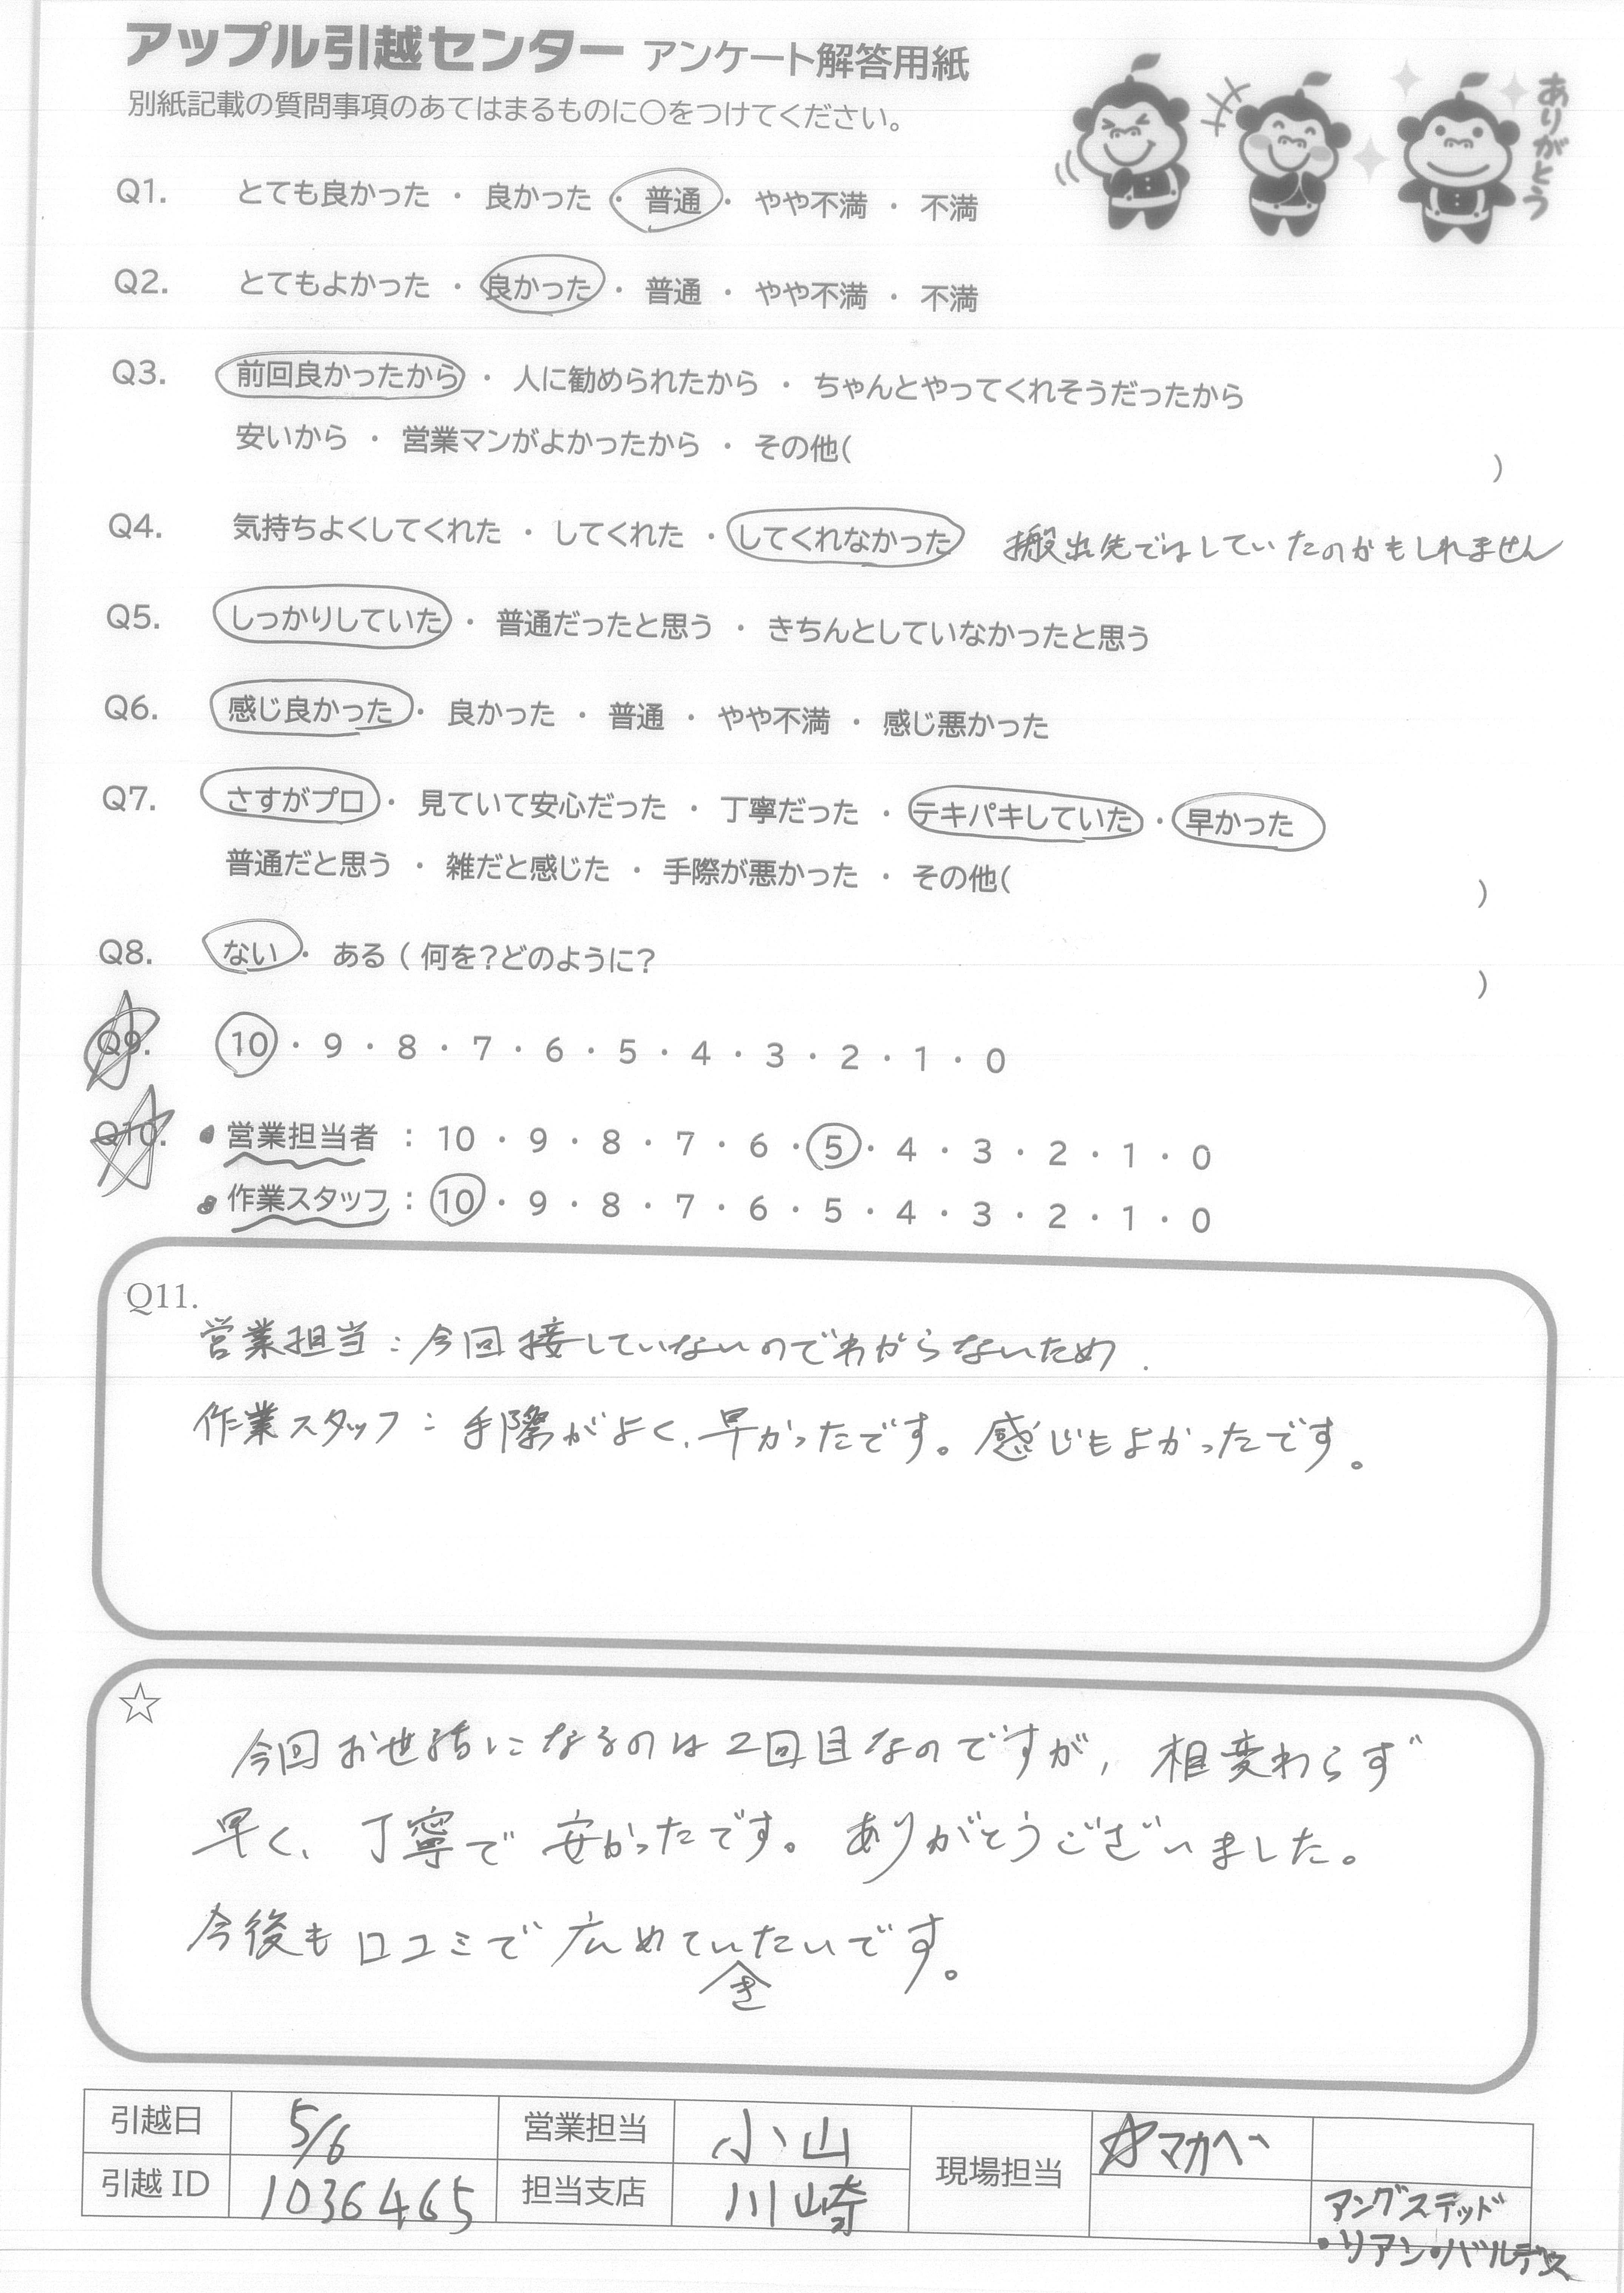 アップル引越センター アンケート解答用紙
別紙記載の質問事項のあてはまるものに〇をつけてください。
ありがとう
Q1. とても良かった ・ 良かった ・ 普通 ・ やや不満 ・ 不満
Q2. とてもよかった ・ 良かった ・ 普通 ・ やや不満 ・ 不満
Q3. 前回良かったから ・ 人に勧められたから ・ ちゃんとやってくれそうだったから
安いから ・ 営業マンがよかったから ・ その他( )
Q4. 気持ちよくしてくれた ・ してくれた ・ してくれなかった 搬出先ではしていたのかもしれません
Q5. しっかりしていた ・ 普通だったと思う ・ きちんとしていなかったと思う
Q6. 感じ良かった ・ 良かった ・ 普通 ・ やや不満 ・ 感じ悪かった
Q7. さすがプロ ・ 見ていて安心だった ・ 丁寧だった ・ テキパキしていた ・ 早かった
普通だと思う ・ 雑だと感じた ・ 手際が悪かった ・ その他( )
Q8. ない ・ ある ( 何を?どのように? )
Q9. 10 ・ 9 ・ 8 ・ 7 ・ 6 ・ 5 ・ 4 ・ 3 ・ 2 ・ 1 ・ 0
Q10. 営業担当者 : 10 ・ 9 ・ 8 ・ 7 ・ 6 ・ 5 ・ 4 ・ 3 ・ 2 ・ 1 ・ 0
作業スタッフ : 10 ・ 9 ・ 8 ・ 7 ・ 6 ・ 5 ・ 4 ・ 3 ・ 2 ・ 1 ・ 0
Q11.
営業担当:今回接していないのでわからないため.
作業スタッフ:手際がよく、早かったです。感じもよかったです。
☆
今回お世話になるのは2回目なのですが、相変わらず
早く、丁寧で安かったです。ありがとうございました。
今後も口コミで広めていきたいです。
引越日 5/6 営業担当 小山 現場担当 ☆マカベ
引越ID 1036465 担当支店 川崎 アングステッド
・リアン・バルデス